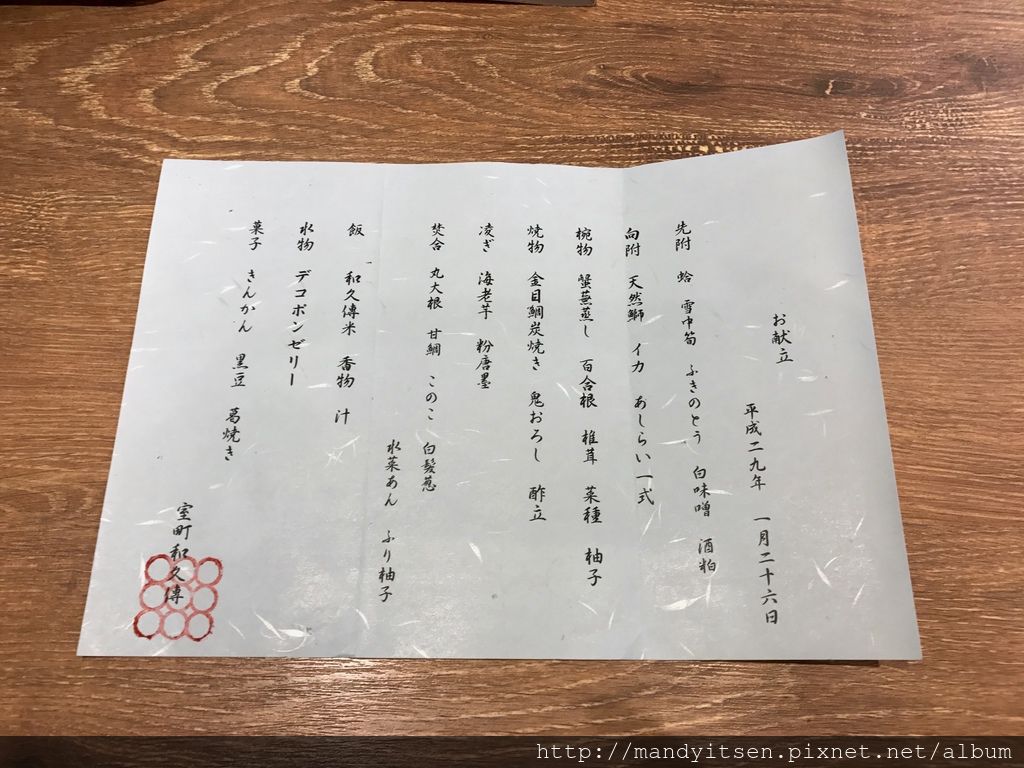 お献立
平成二九年 一月二十六日
先附 蛤 雪中筍 ふきのとう 白味噌 酒粕
向附 天然鰤 イカ あしらい一式
椀物 蟹蕪蒸し 百合根 椎茸 菜種 柚子
焼物 金目鯛炭焼き 鬼おろし 酢立
凌ぎ 海老芋 粉唐墨
焚合 丸大根 甘鯛 このこ 白髪葱
水菜あん ふり柚子
飯 和久傳米 香物 汁
水物 デコポンゼリー
菓子 きんかん 黒豆 葛焼き
室町和久傳
http://mandyitsen.pixnet.net/album